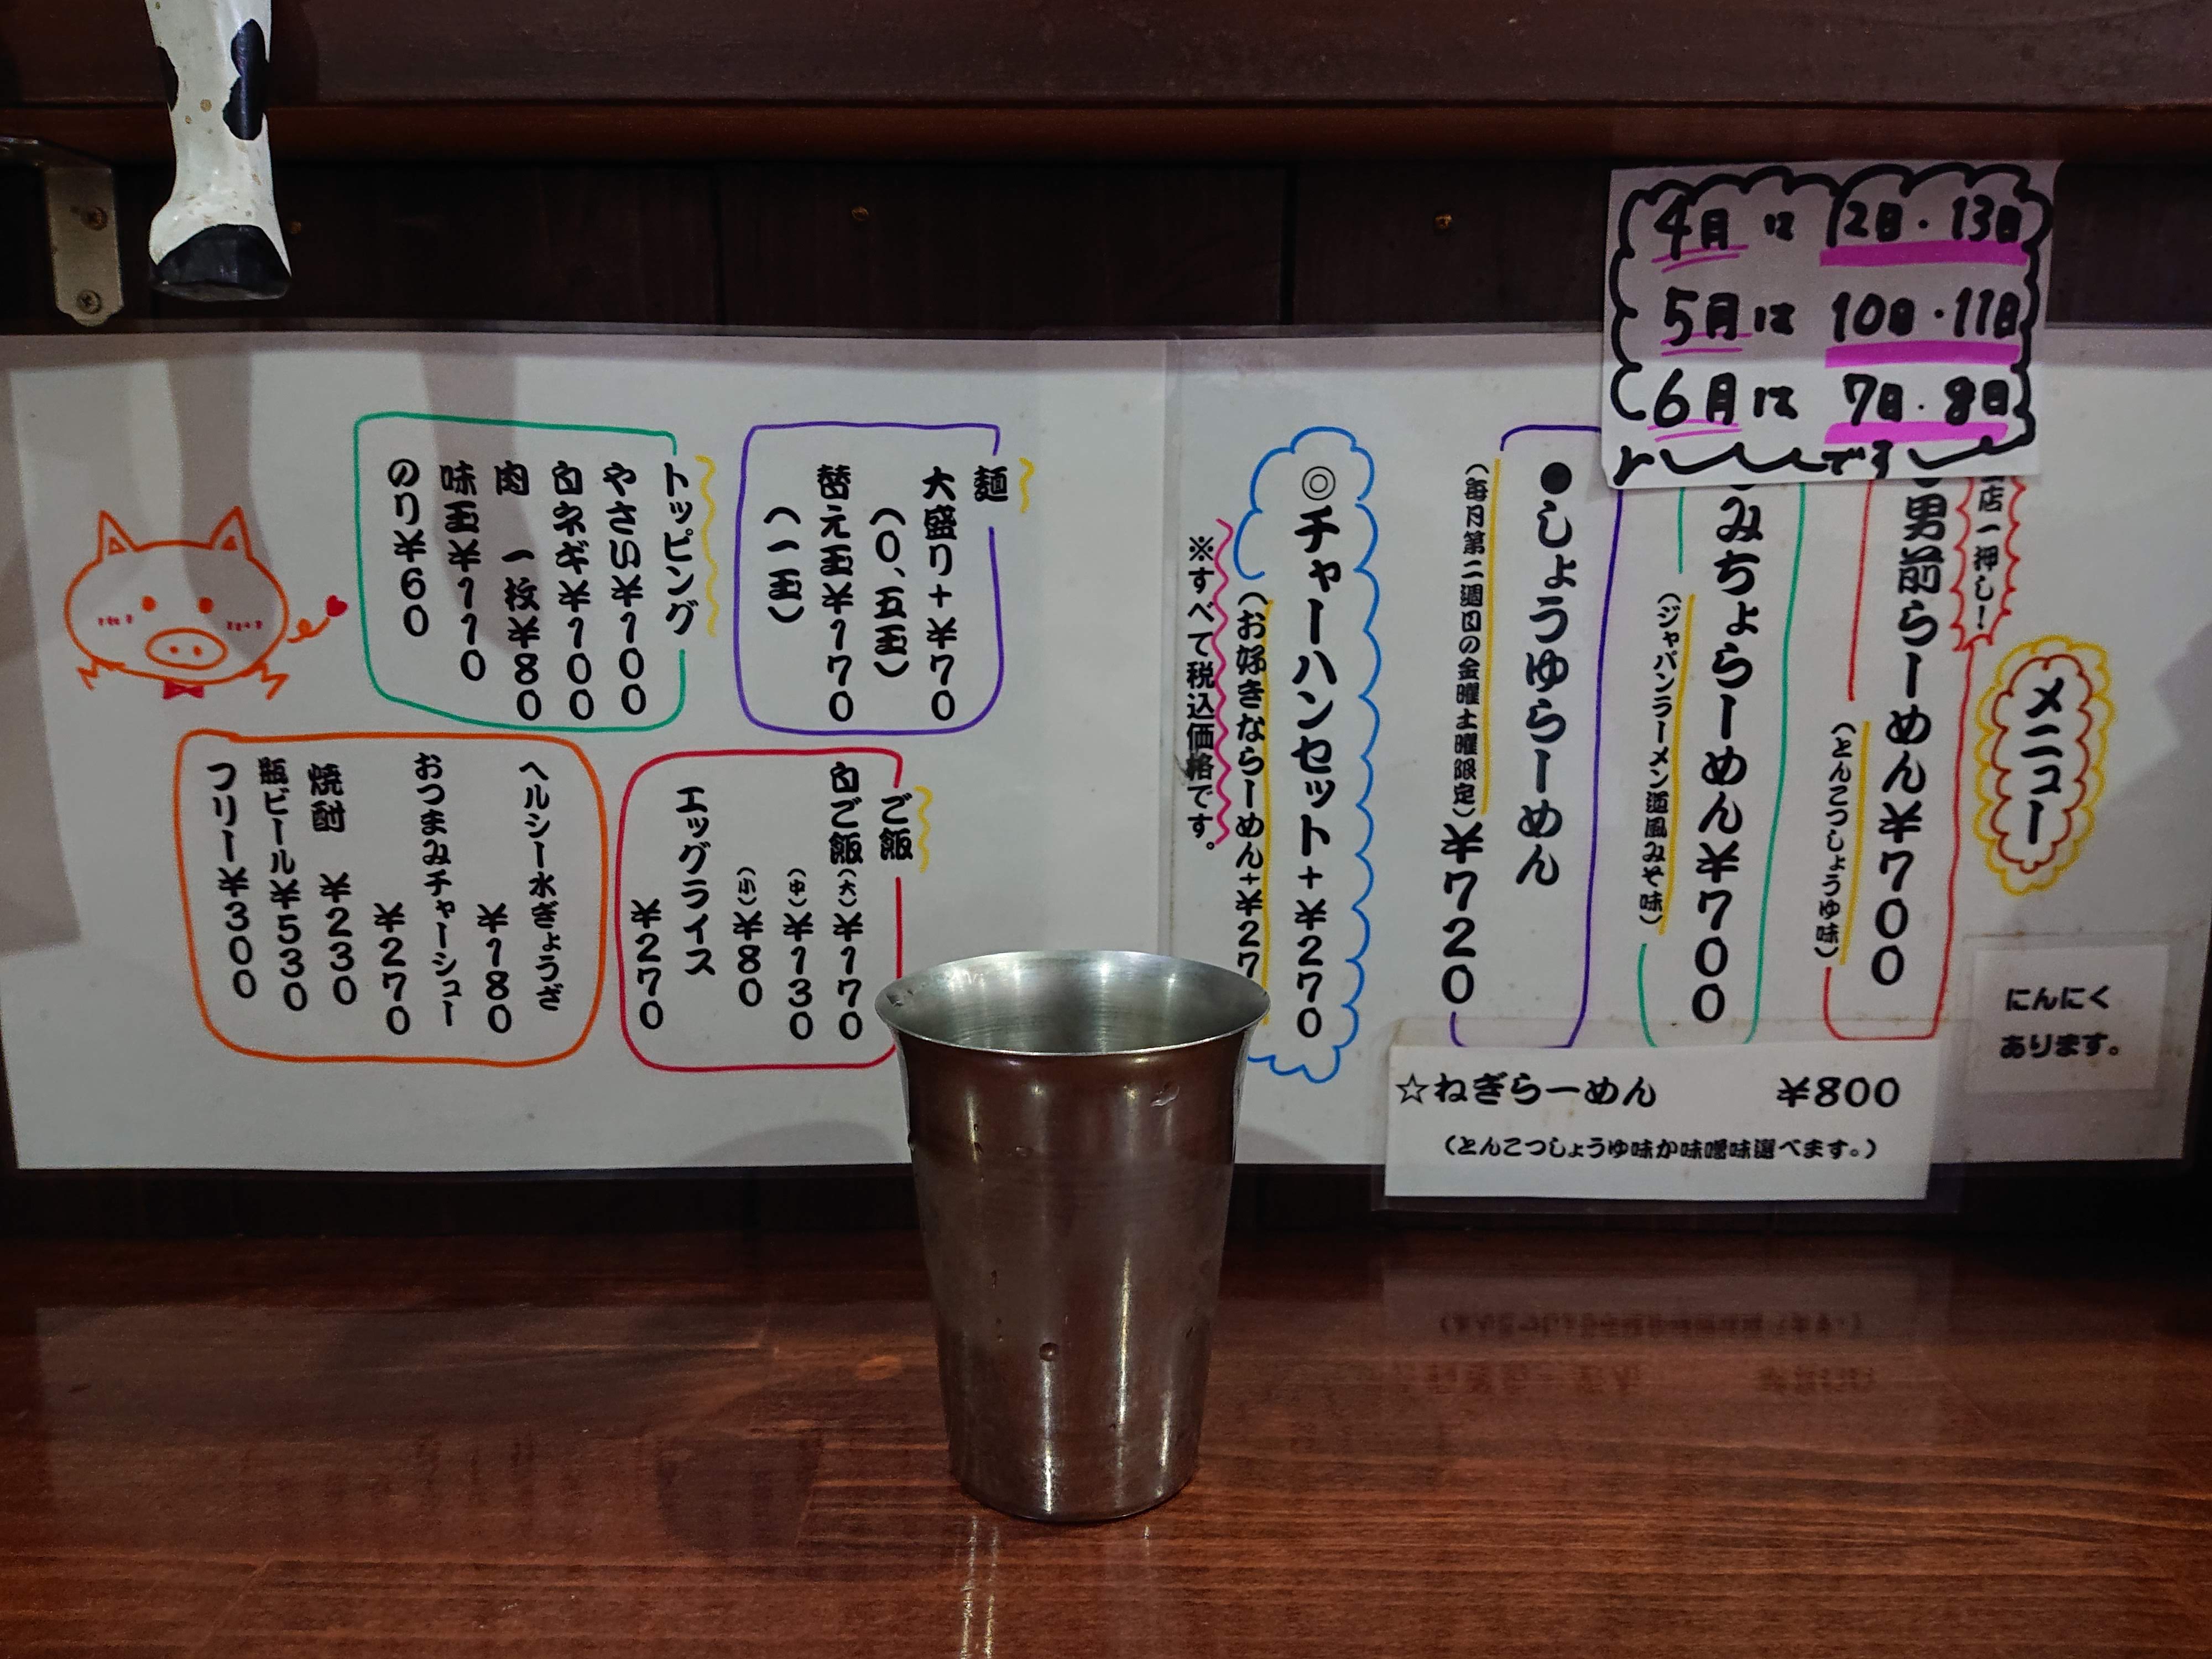 4月は 12日・13日
5月は 10日・11日
6月は 7日・8日
です
メニュー
店一押し!
男前らーめん¥700
(とんこつしょうゆ味)
みちょらーめん¥700
(ジャパンラーメン道風みそ味)
●しょうゆらーめん
(毎月第二週目の金曜土曜限定)¥720
◎チャーハンセット+¥270
(お好きならーめん+¥27
※すべて税込価格です。
にんにく
あります。
☆ねぎらーめん ¥800
(とんこつしょうゆ味か味噌味選べます。)
麺
大盛り+¥70
(0、五玉)
替え玉¥170
(一玉)
トッピング
やさい¥100
白ネギ¥100
肉 一枚¥80
味玉¥110
のり¥60
ご飯
白ご飯(大)¥170
(中)¥130
(小)¥80
エッグライス
¥270
ヘルシー水ぎょうざ
¥180
おつまみチャーシュー
¥270
焼酎 ¥230
瓶ビール¥530
フリー¥300